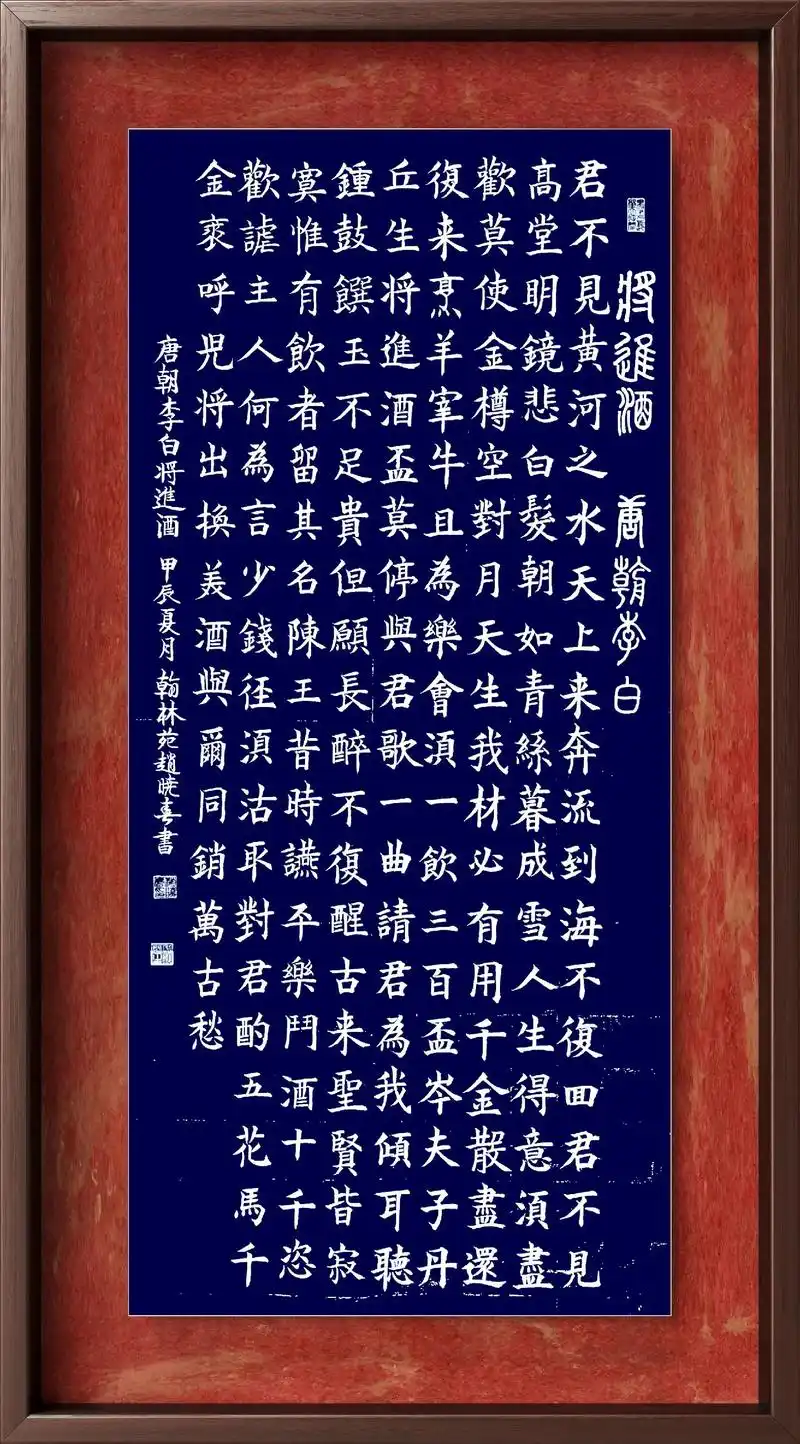 將進酒 唐朝李白
君不見黃河之水天上来奔流到海不復回君不見
高堂明鏡悲白髮朝如青絲暮成雪人生得意須盡
歡莫使金樽空對月天生我材必有用千金散盡還
復来烹羊宰牛且為樂會湏一飲三百盃岑夫子丹
丘生将進酒盃莫停與君歌一曲請君為我傾耳聽
鍾鼓饌玉不足貴但願長醉不復醒古来聖賢皆寂
寞惟有飲者留其名陳王昔時讌平樂鬥酒十千恣
歡謔主人何為言少錢徑湏沽取對君酌五花馬千
金裘呼児将出換美酒與爾同銷萬古愁
唐朝李白将進酒 甲辰夏月 翰林苑趙曉春書